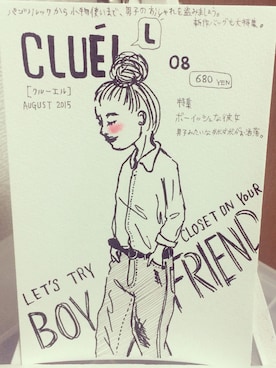 パンツルックから小物使いまで、男子のおしゃれを盗みましょう。
新作バッグも大特集。
CLUÉL
L
[クルーエル]
AUGUST 2015
08
680 YEN
特集
ボーイッシュな彼女
男子みたいな
お洒落。
LET'S TRY
BOY FRIEND
CLOSET ON YOUR